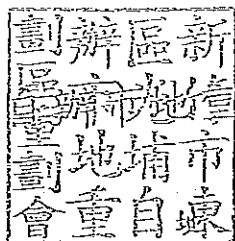 新臺市
區地埔自
辦市地重
劃區重劃會